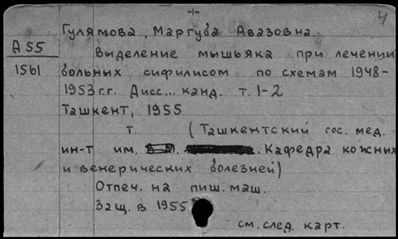 -1-
4
Гулямова, Маргуба Авазовна.
А55
1561
Выделение мышьяка при лечении
больных сифилисом по схемам 1948-
1953 г.г. Дисс... канд. т. 1-2
Ташкент, 1955
т. (Ташкентский гос. мед.
ин-т им. Кафедра кожных
и венерических болезней)
Отпеч. на пиш. маш.
Защ. в 1955
см. след. карт.